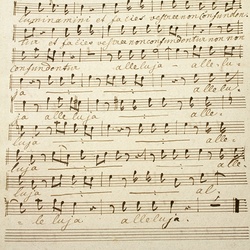 luminamini et facies vestrae non confunden
tur et facies vestrae non confundentur non non
confundentur alleluja - alle. lu.
ja alle lu.
ja alle luja alle.
luja alle.
luja al.
le luja alleluja.